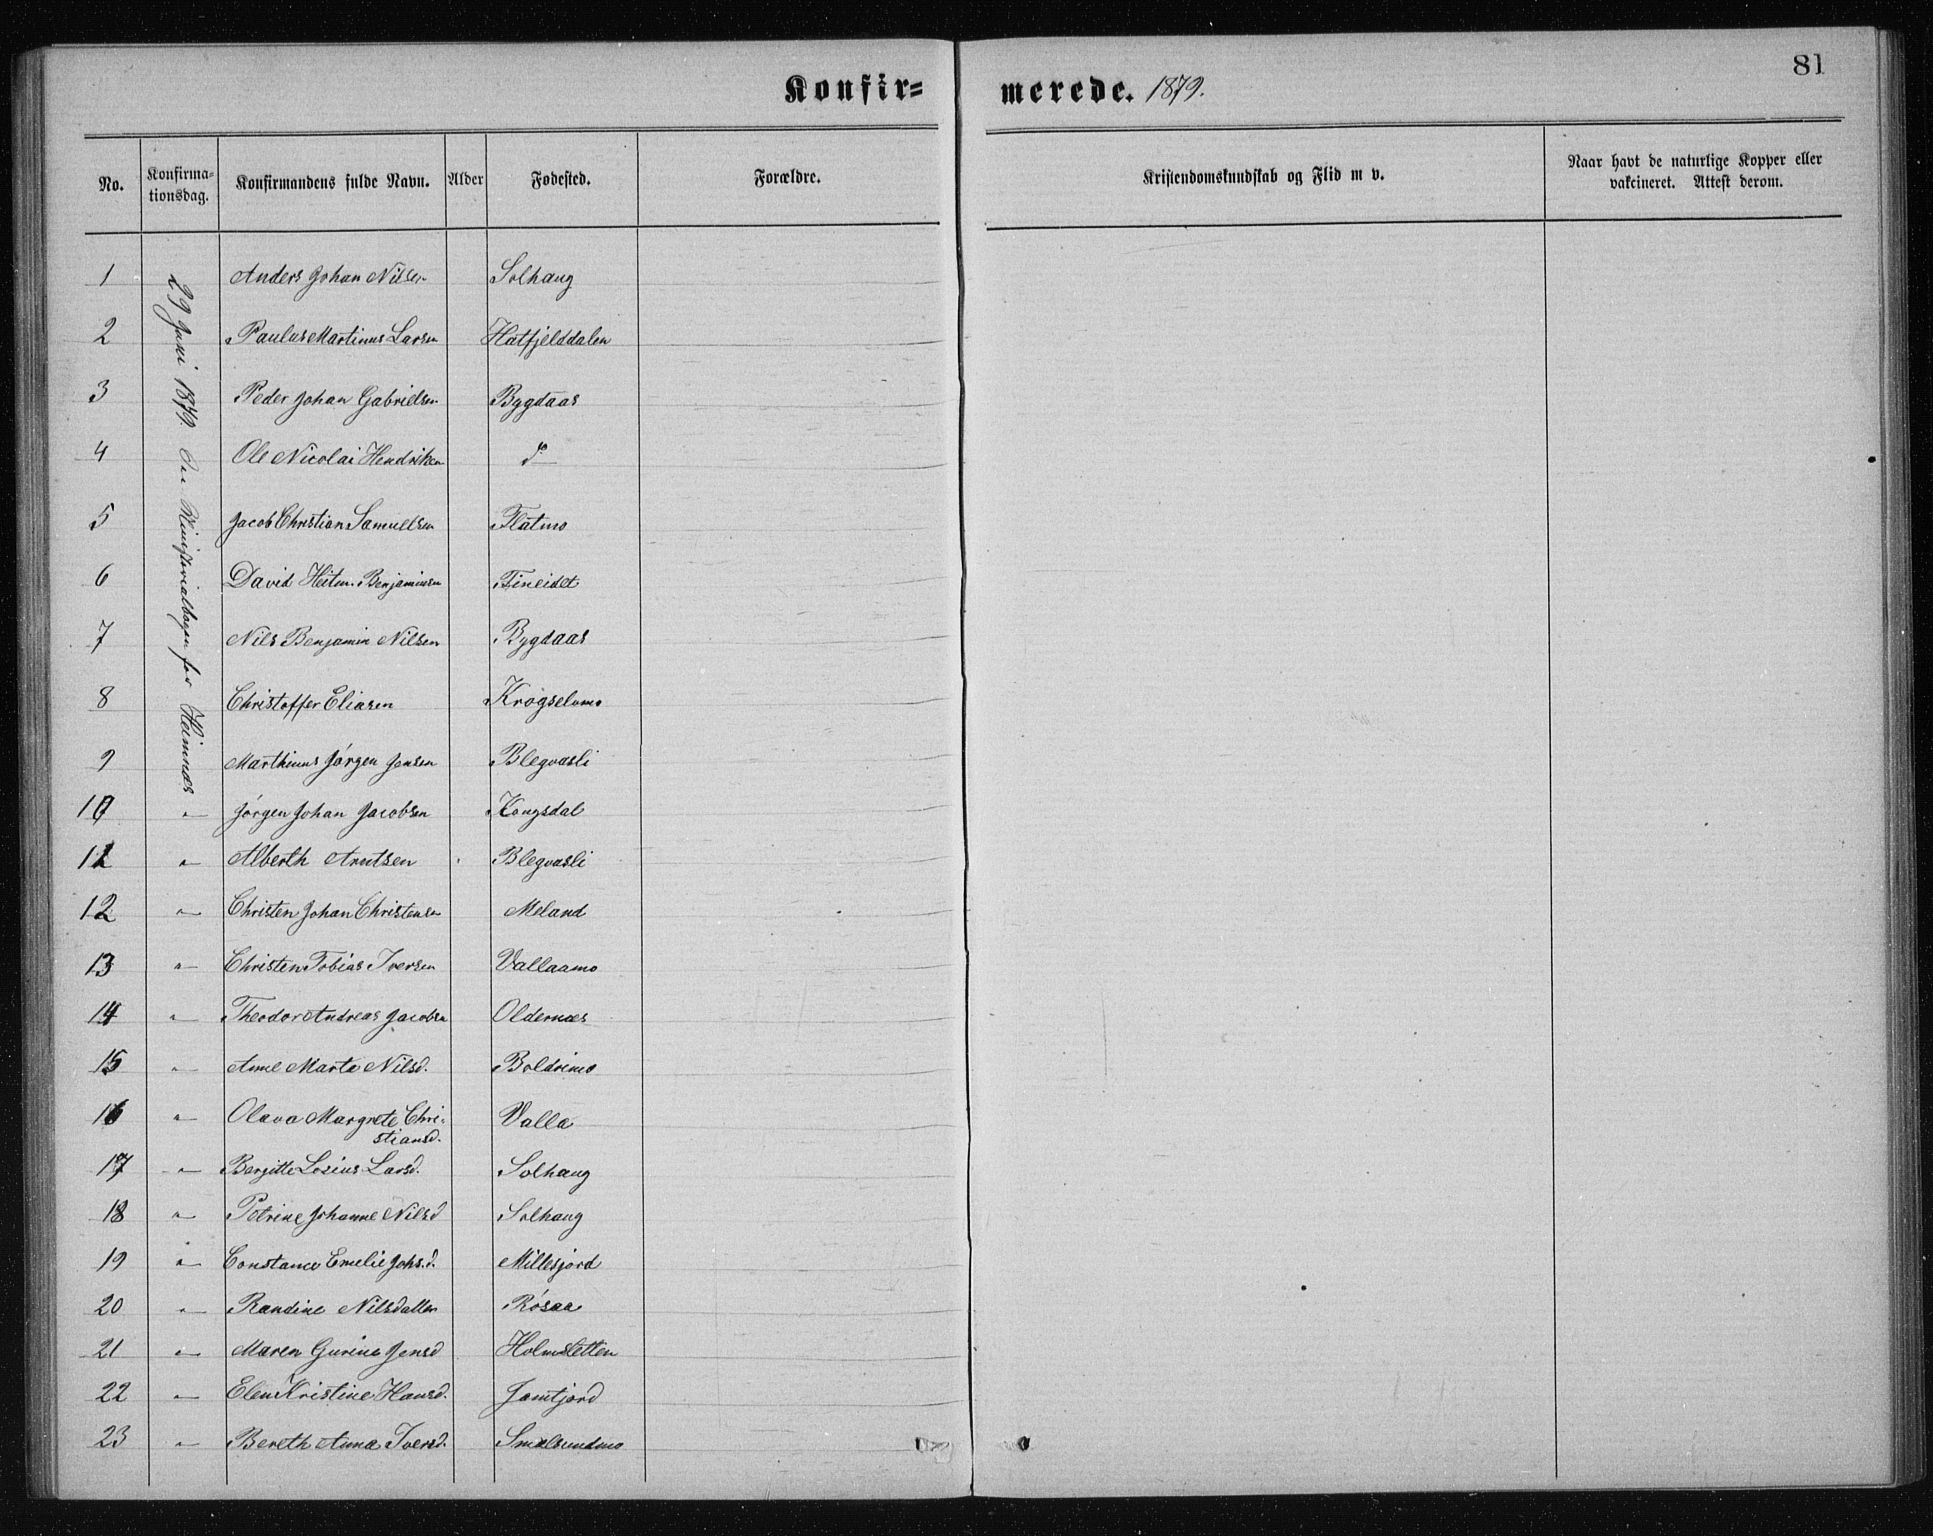 81
Konfir= merede. 1879.
No. Konfirma-tionsdag. Konfirmandens fulde Navn. Alder Fødested. Forældre. Kristendomskundskab og Flid m v. Naar havt de naturlige Kopper eller vakcineret. Attest derom.
29 Juni 1879. Ministerialbogen for Heimnæs
1 Anders Johan Nilsen Solhaug
2 Paulus Martinus Larsen Hatfjelddalen
3 Peder Johan Gabrielsen Bygdaas
4 Ole Nicolai Hendriksen do
5 Jacob Christian Samuelsen Flatmo
6 David Heitm. Benjaminsen Fineidet
7 Nils Benjamin Nilsen Bygdaas
8 Christoffer Eliasen Krogselvmo
9 Marthinus Jørgen Jensen Blegvasli
10 " Jørgen Johan Jacobsen Kongsdal
11 " Alberth Arntsen Blegvasli
12 " Christen Johan Christensen Meland
13 " Christen Tobias Iversen Vallaamo
14 " Theodor Andreas Jacobsen Oldernæs
15 " Anne Marta Nilsd. Boldrimo
16 " Olava Margrete Chri-
stiansd. Valla
17 " Bergitte Larsd. Solhaug
18 " Petrine Johanne Nilsd Solhaug
19 " Constance Emelie Johsd. Millesjord
20 " Randine Nilsdatter Røsaa
21 " Maren Gurine Jensd Holmsletten
22 " Elen Kristine Hansd. Jamtjord
23 " Bereth Anna Iversd. Smalsundmo